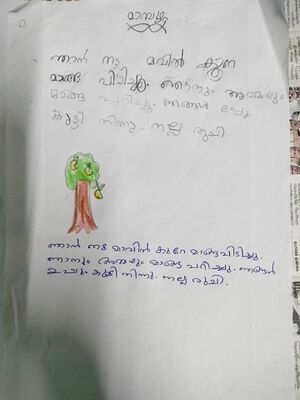 മാമ്പഴം
ഞാൻ നട്ട മവിൻ കുറെ
മാങ്ങ പിടിച്ചു. ഞാനും അമ്മയും
മാങ്ങ പറിച്ചു. ഞങ്ങൾ ഉപ്പും
കൂട്ടി തിന്നു. നല്ല രുചി
ഞാൻ നട്ട മാവിൻ കുറേ മാങ്ങപിടിച്ചു.
ഞാനും അമ്മയും മാങ്ങ പറിച്ചു. ഞങ്ങൾ
ഉപ്പും കൂട്ടി തിന്നു. നല്ല രുചി.